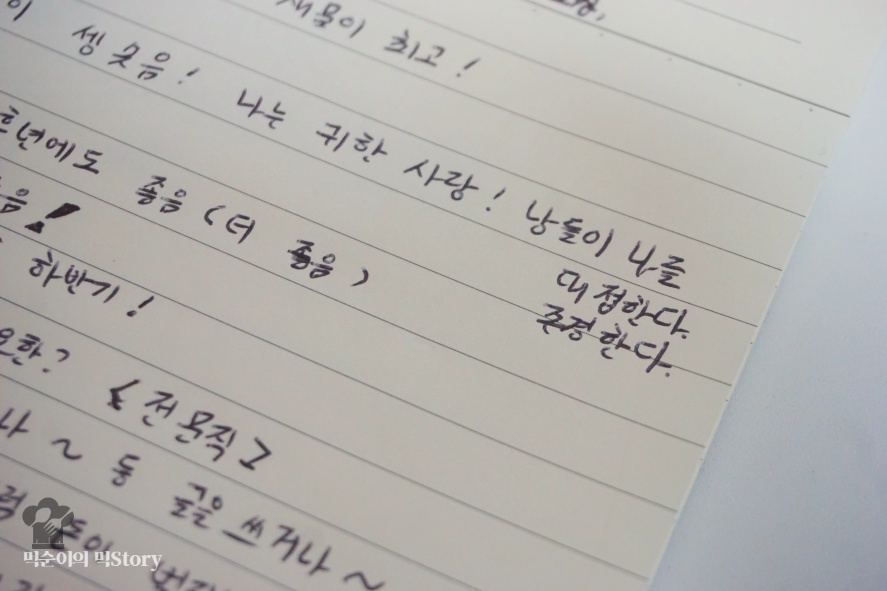 재물이 최고!
셍 숫음! 나는 귀한 사람! 남들이 나를
대접한다.
존경한다.
후년에도 좋음 (더 좋음)
음!
하반기!
요한?
<전문직>
나 ~ 둥 글을 쓰거나 ~
먹순이의 먹Story